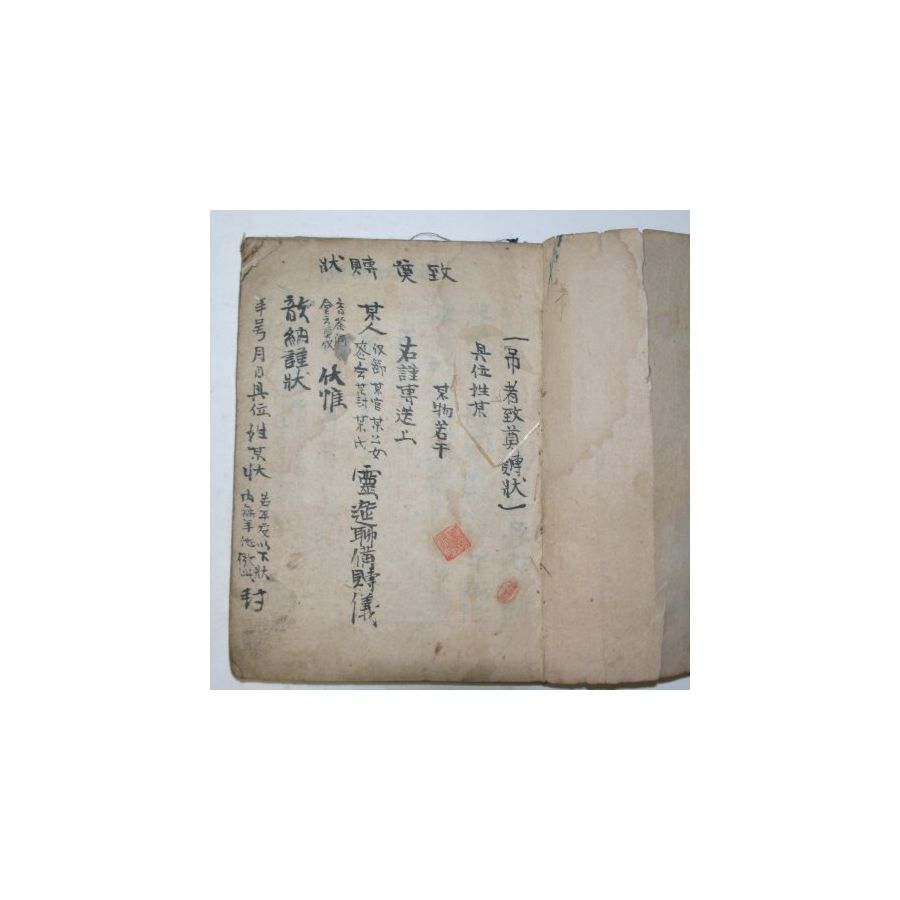 致奠賻狀
吊者致奠賻狀
具位姓某
某物若干
右謹專送上
某人
某官某公
某封某氏
靈筵聊備賻儀
香茶酒食云奠儀
伏惟
歆納謹狀
年号月日具位姓某狀
封